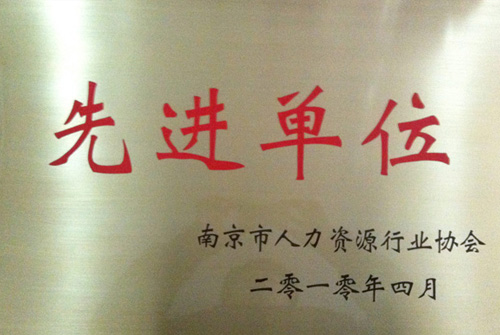 先进单位
南京市人力资源行业协会
二零一零年四月